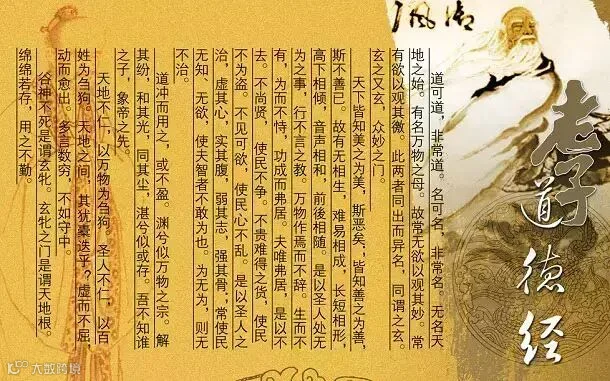 御风
老子
道德经
道可道，非常道。名可名，非常名。无名天
地之始。有名万物之母。故常无欲以观其妙。常
有欲以观其微。此两者同出而异名，同谓之
玄之又玄，众妙之门。
天下皆知美之为美，斯恶矣；皆知善之为善，
斯不善已。故有无相生，难易相成，长短相形，
高下相倾，音声相和，前後相随。是以圣人处无
为之事，行不言之教。万物作焉而不辞。生而不
有，为而不恃，功成而弗居。夫唯弗居，是以不
去。不尚贤，使民不争。不贵难得之货，使民
不为盗。不见可欲，使民心不乱。是以圣人之
治，虚其心，实其腹，弱其志，强其骨；常使民
无知、无欲，使夫智者不敢为也。为无为，则无
不治。
道冲而用之，或不盈。渊兮似万物之宗。解
其纷，和其光，同其尘，湛兮似或存。吾不知谁
之子，象帝之先。
天地不仁，以万物为刍狗。圣人不仁，以百
姓为刍狗。天地之间，其犹橐迭乎？虚而不屈，
动而愈出。多言数穷，不如守中。
谷神不死是谓玄牝。玄牝之门是谓天地根。
绵绵若存，用之不勤。
大数跨境